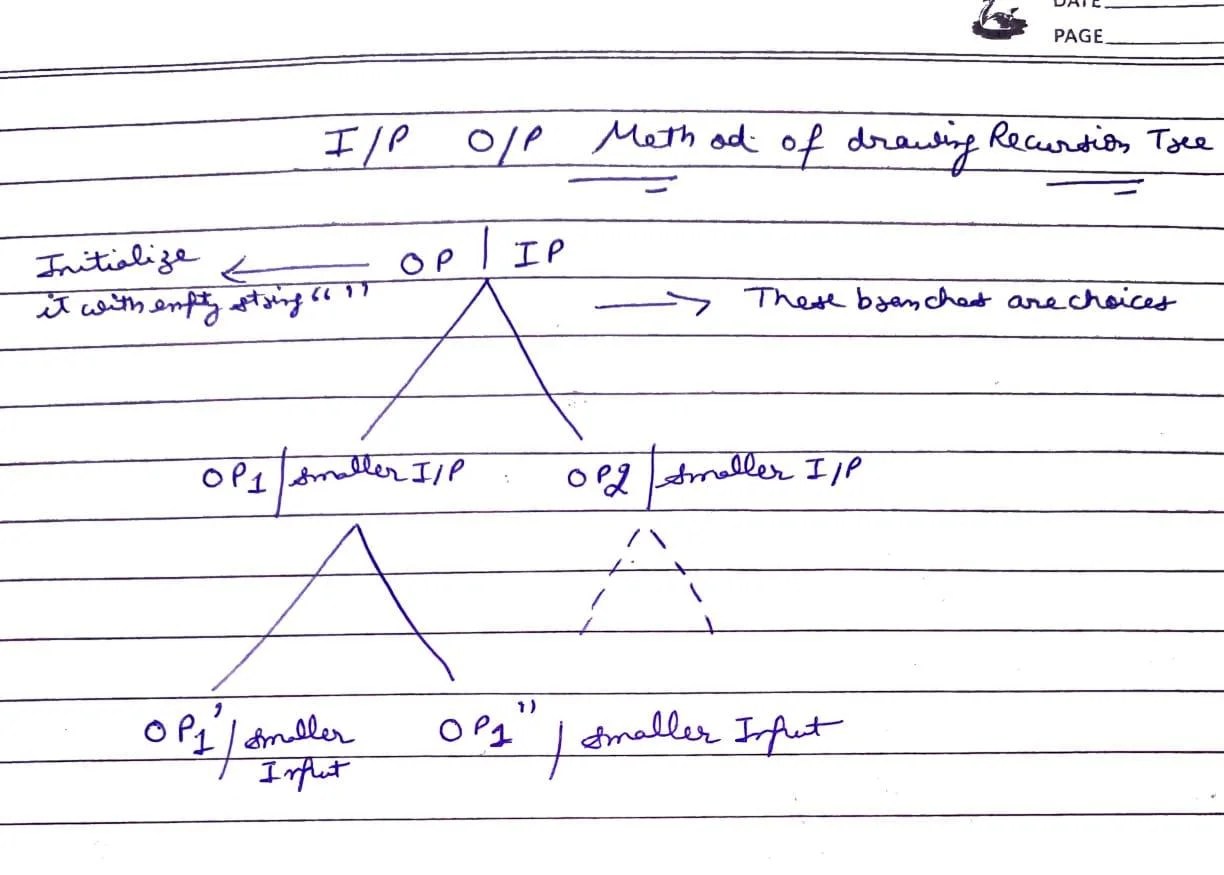 DATE
PAGE
I/P O/P Method of drawing Recursion Tree
OP | IP
Initialize
it with empty string “ ”
These branches are choices
OP1 / smaller I/P
OP2 / smaller I/P
OP1' / smaller
Input
OP1'' / smaller Input